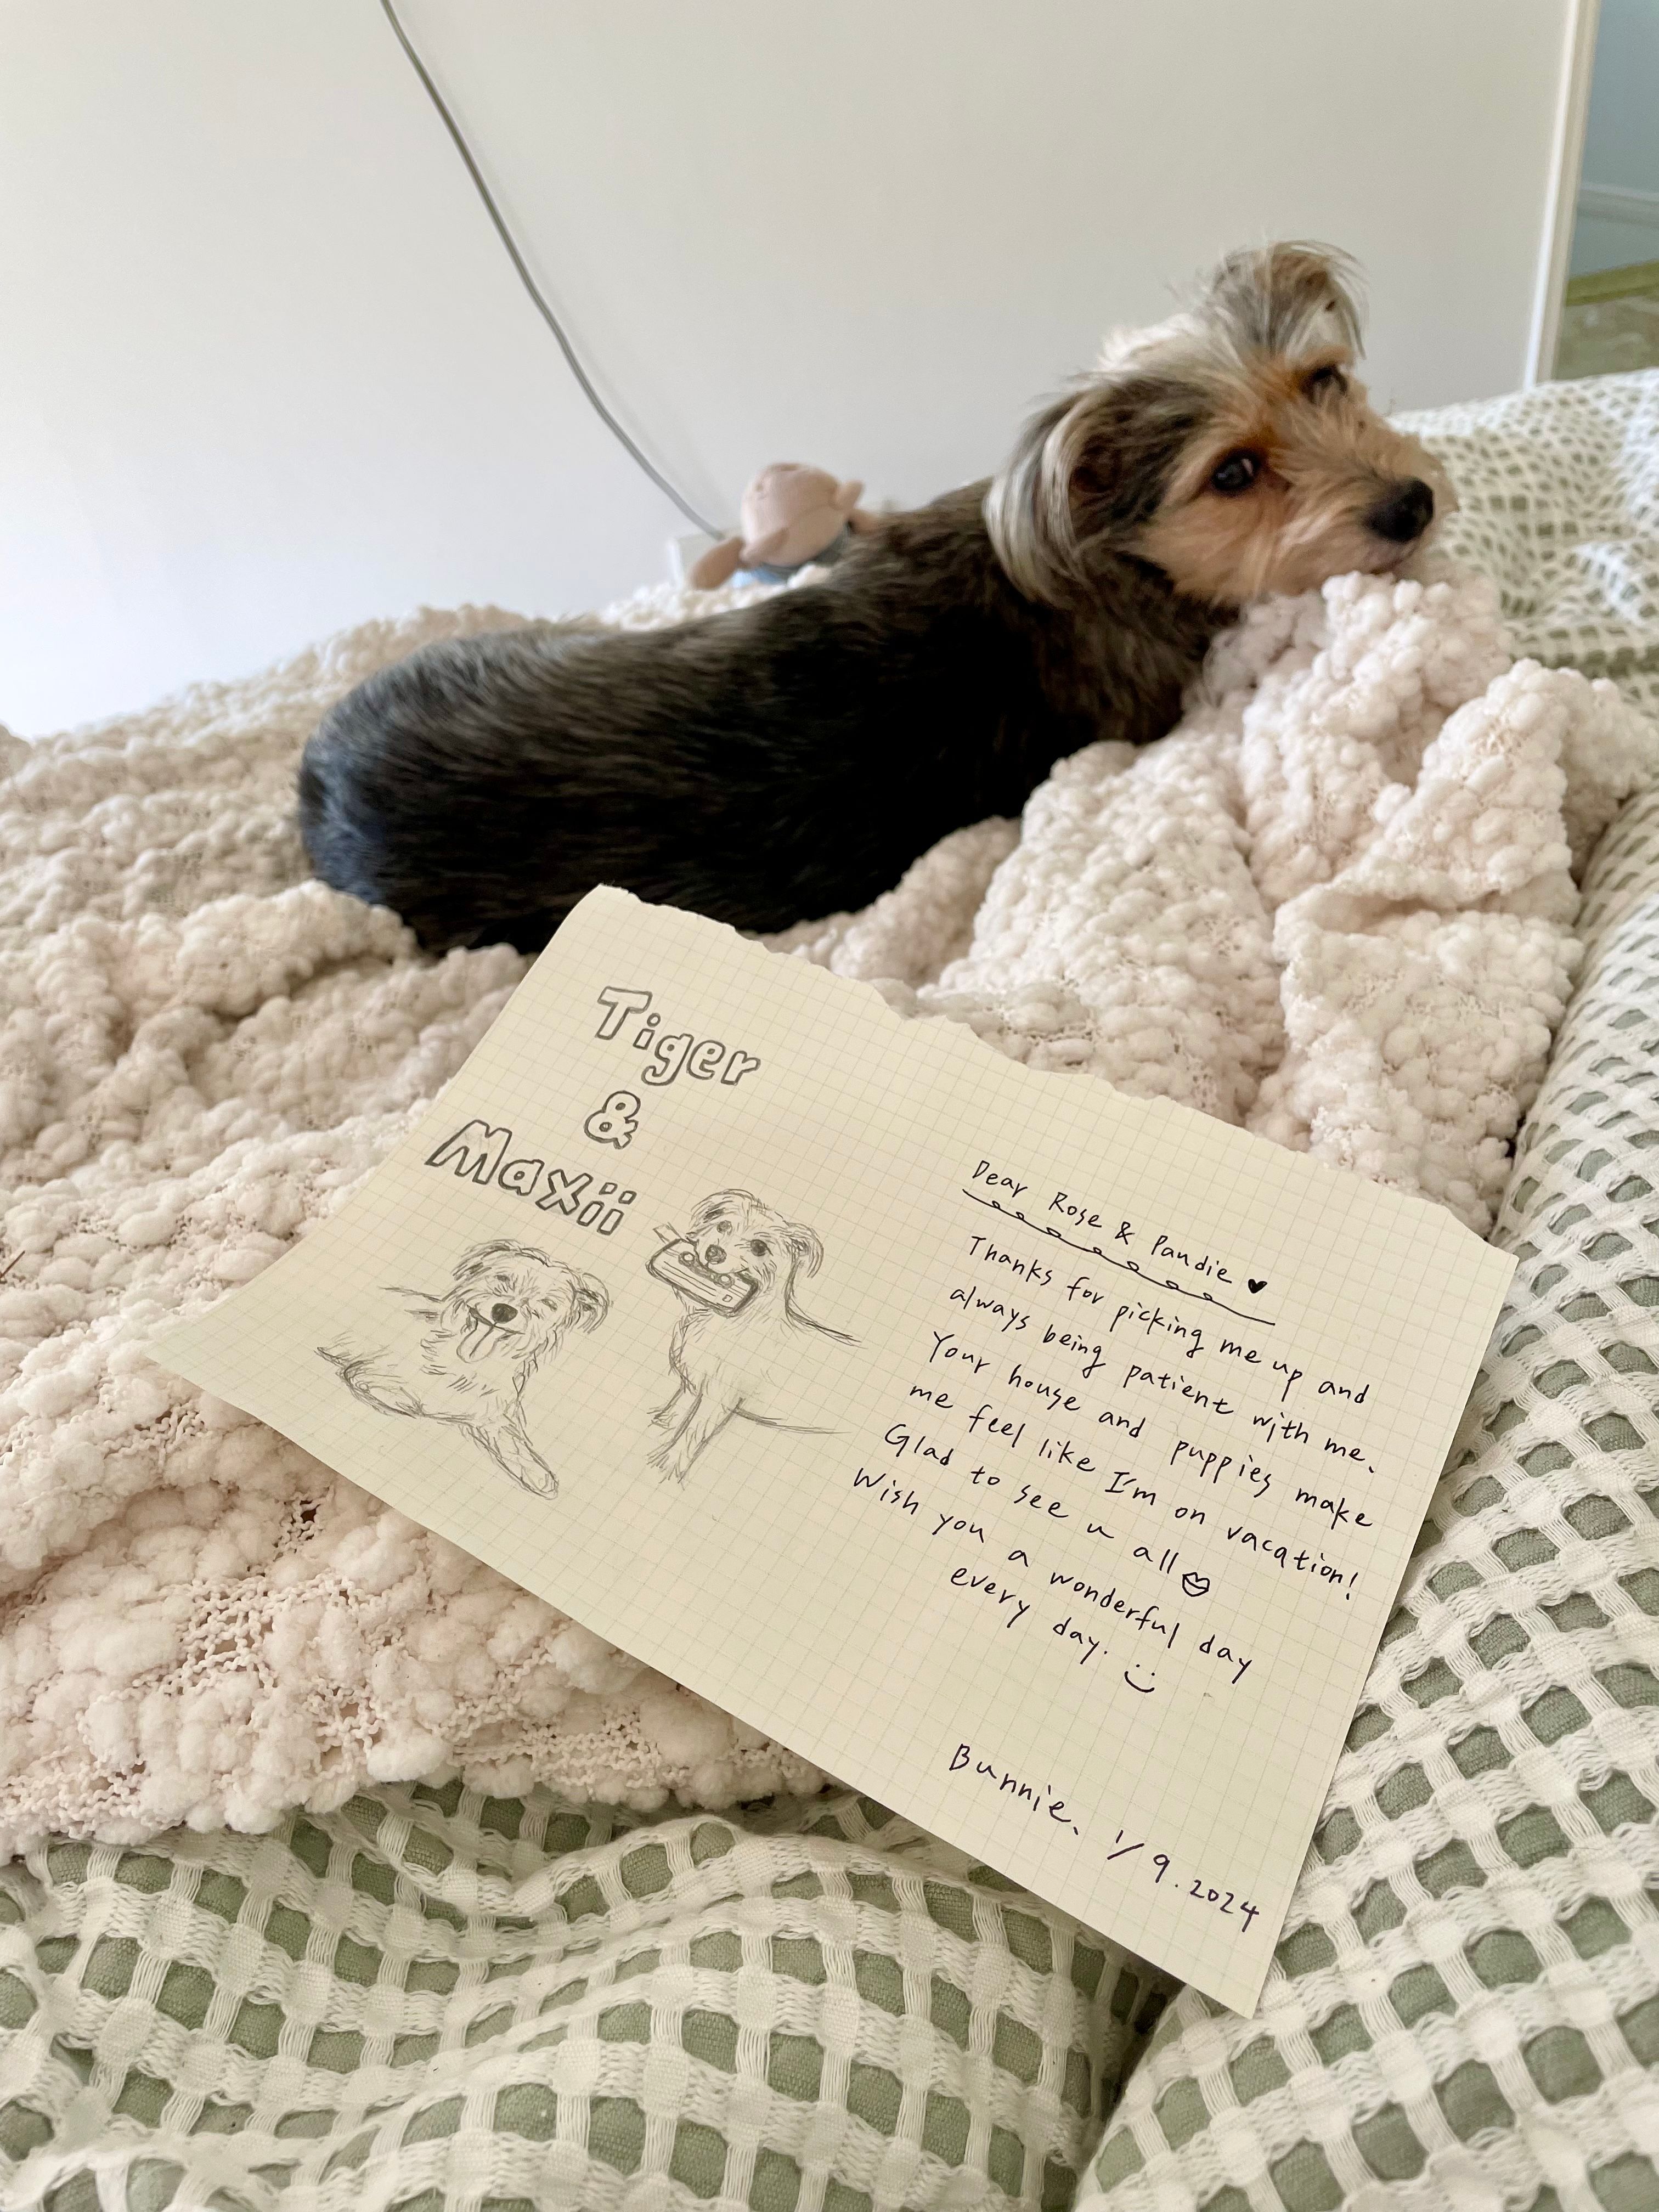 Tiger
&
Maxii
Dear Rose & Pandie
Thanks for picking me up and
always being patient with me.
Your house and puppies make
me feel like I'm on vacation!
Glad to see u all
Wish you a wonderful day
every day.
Bunnie. 1/9.2024